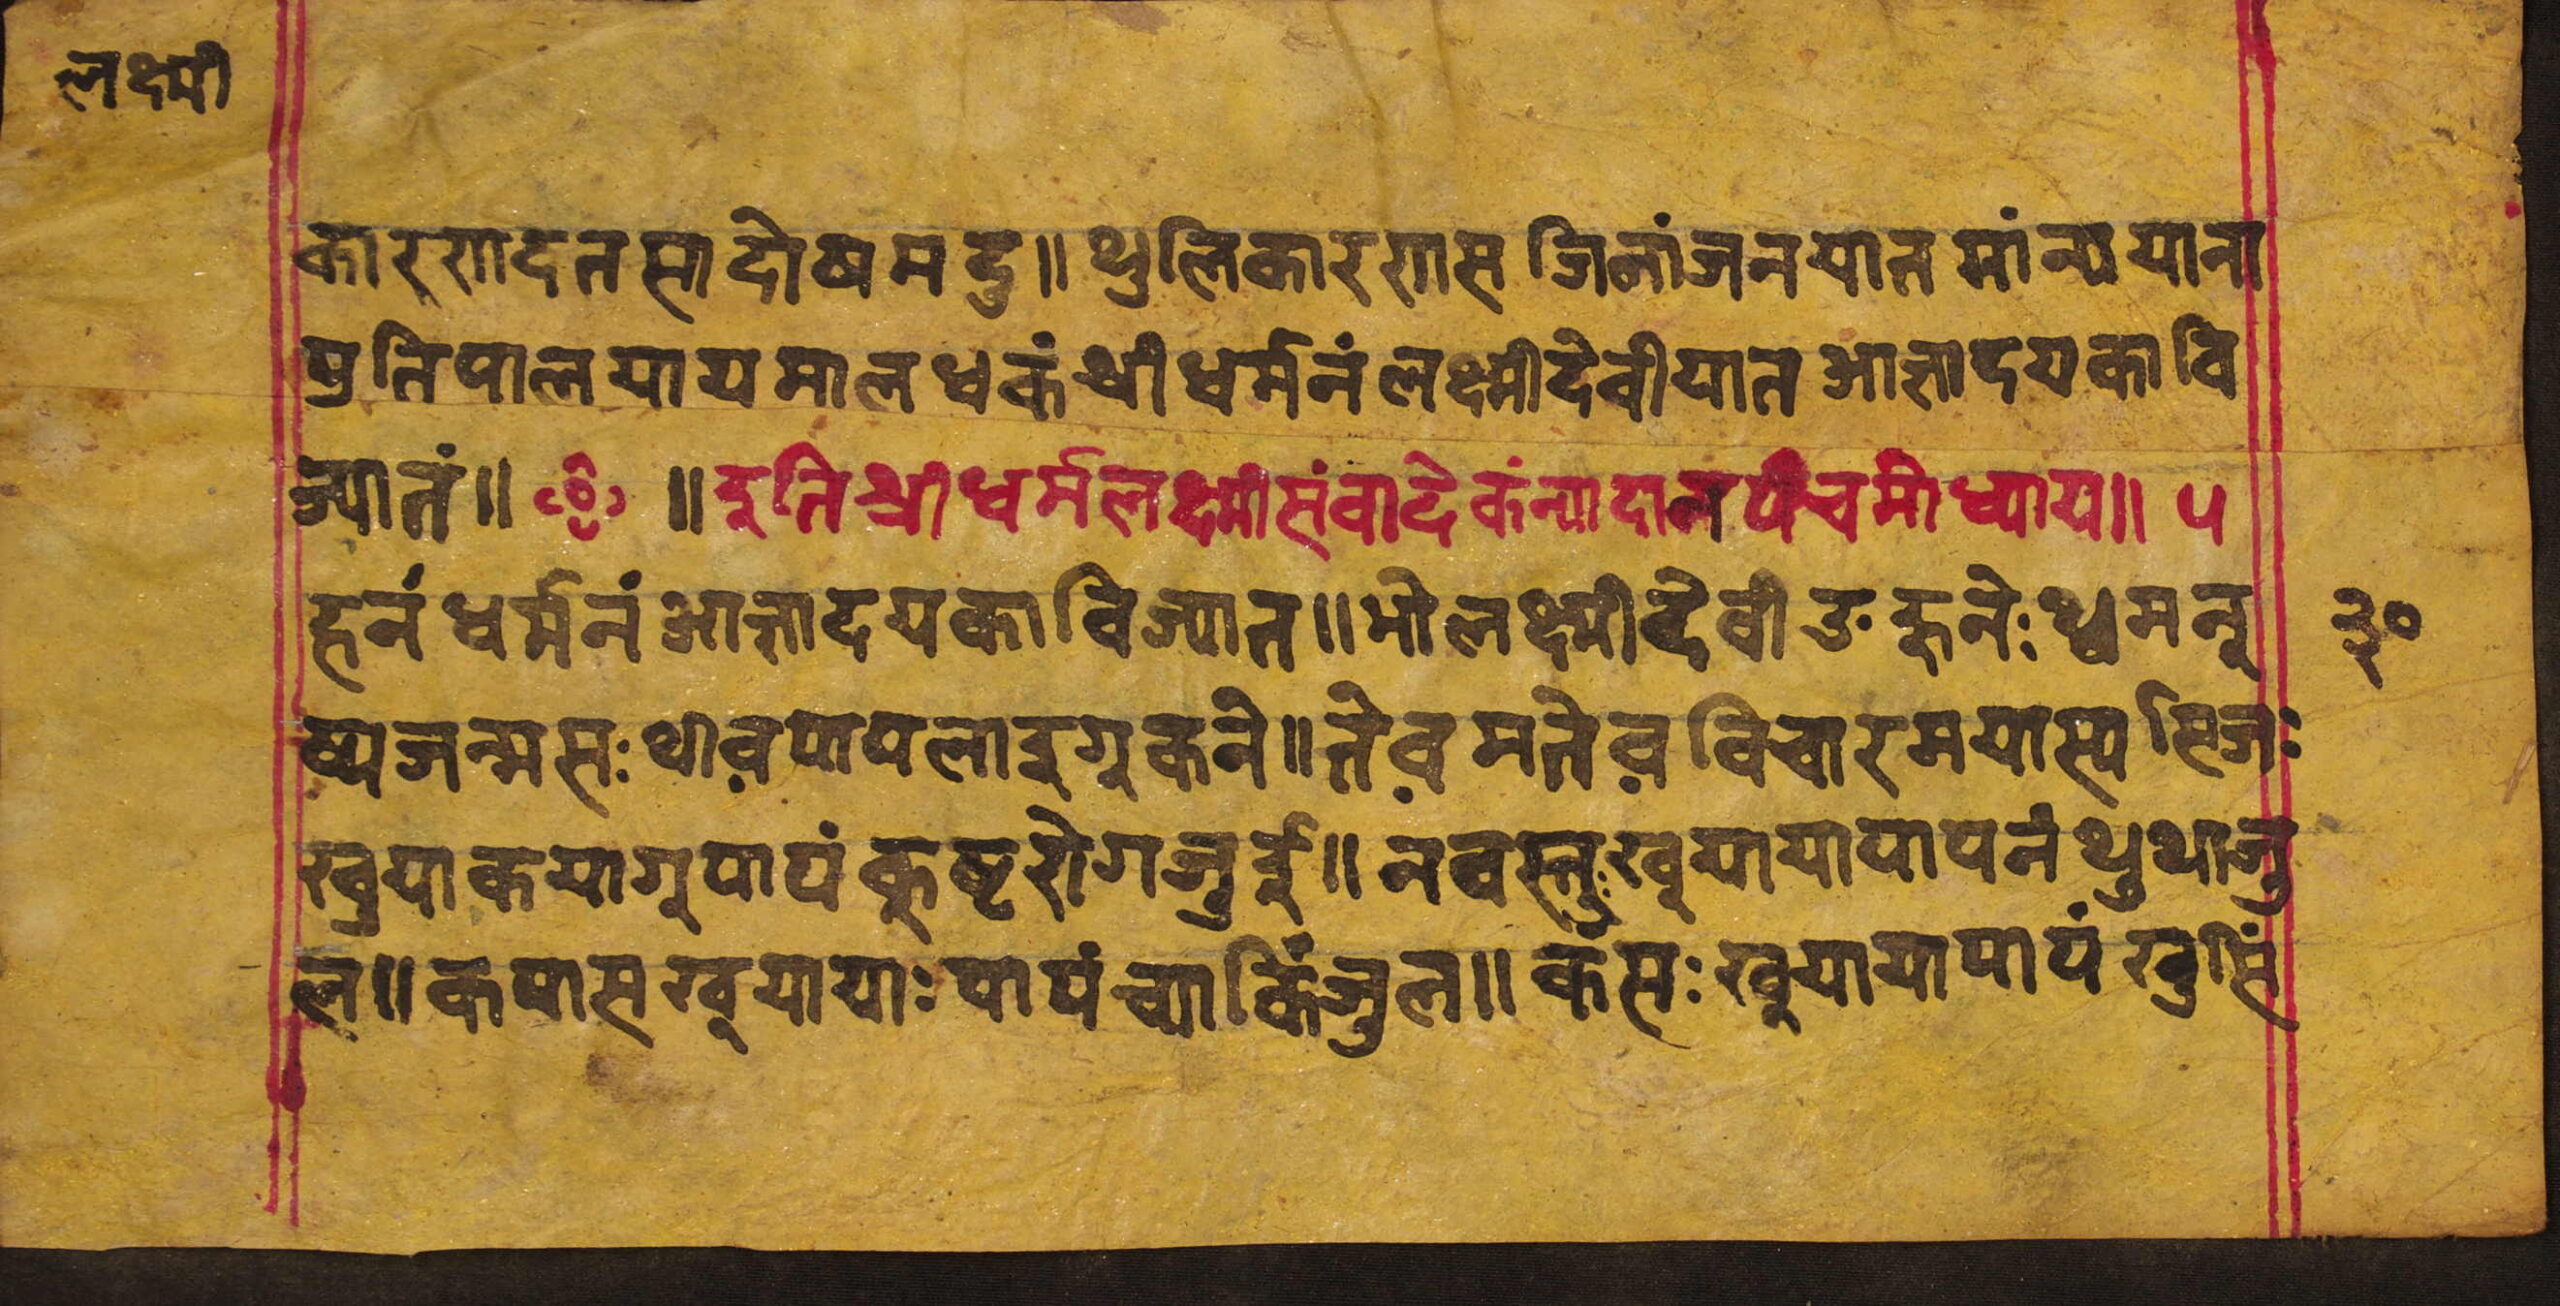 लक्ष्मी
कारणदतसा दोषमदु॥ थुलिकारणस जिनांजनयात मांन्ययाना
प्रतिपालयायमाल धकं श्रीधर्मनं लक्ष्मीदेवीयात आज्ञादयकावि
ज्यातं॥ ॥ इति श्रीधर्मलक्ष्मीसंवादे कंन्यादान पंचमोध्याय॥ ५
हनं धर्मनं आज्ञादयकाविज्यात॥ भो लक्ष्मीदेवी ङकुने: थ्वमनू
ष्यजन्मस: थोव़ पापलाइगू कने॥ तेव़ मतेव़ विचारमयास्य सिज:
खुयाकयागू पापं कुष्टरोगजुई॥ नवस्तु: खूयायापापनं थुथाजु
ल॥ कपास खूयाया: पापं च्याकिंजुल॥ कँस: खूयायापापं खुसिं
३०